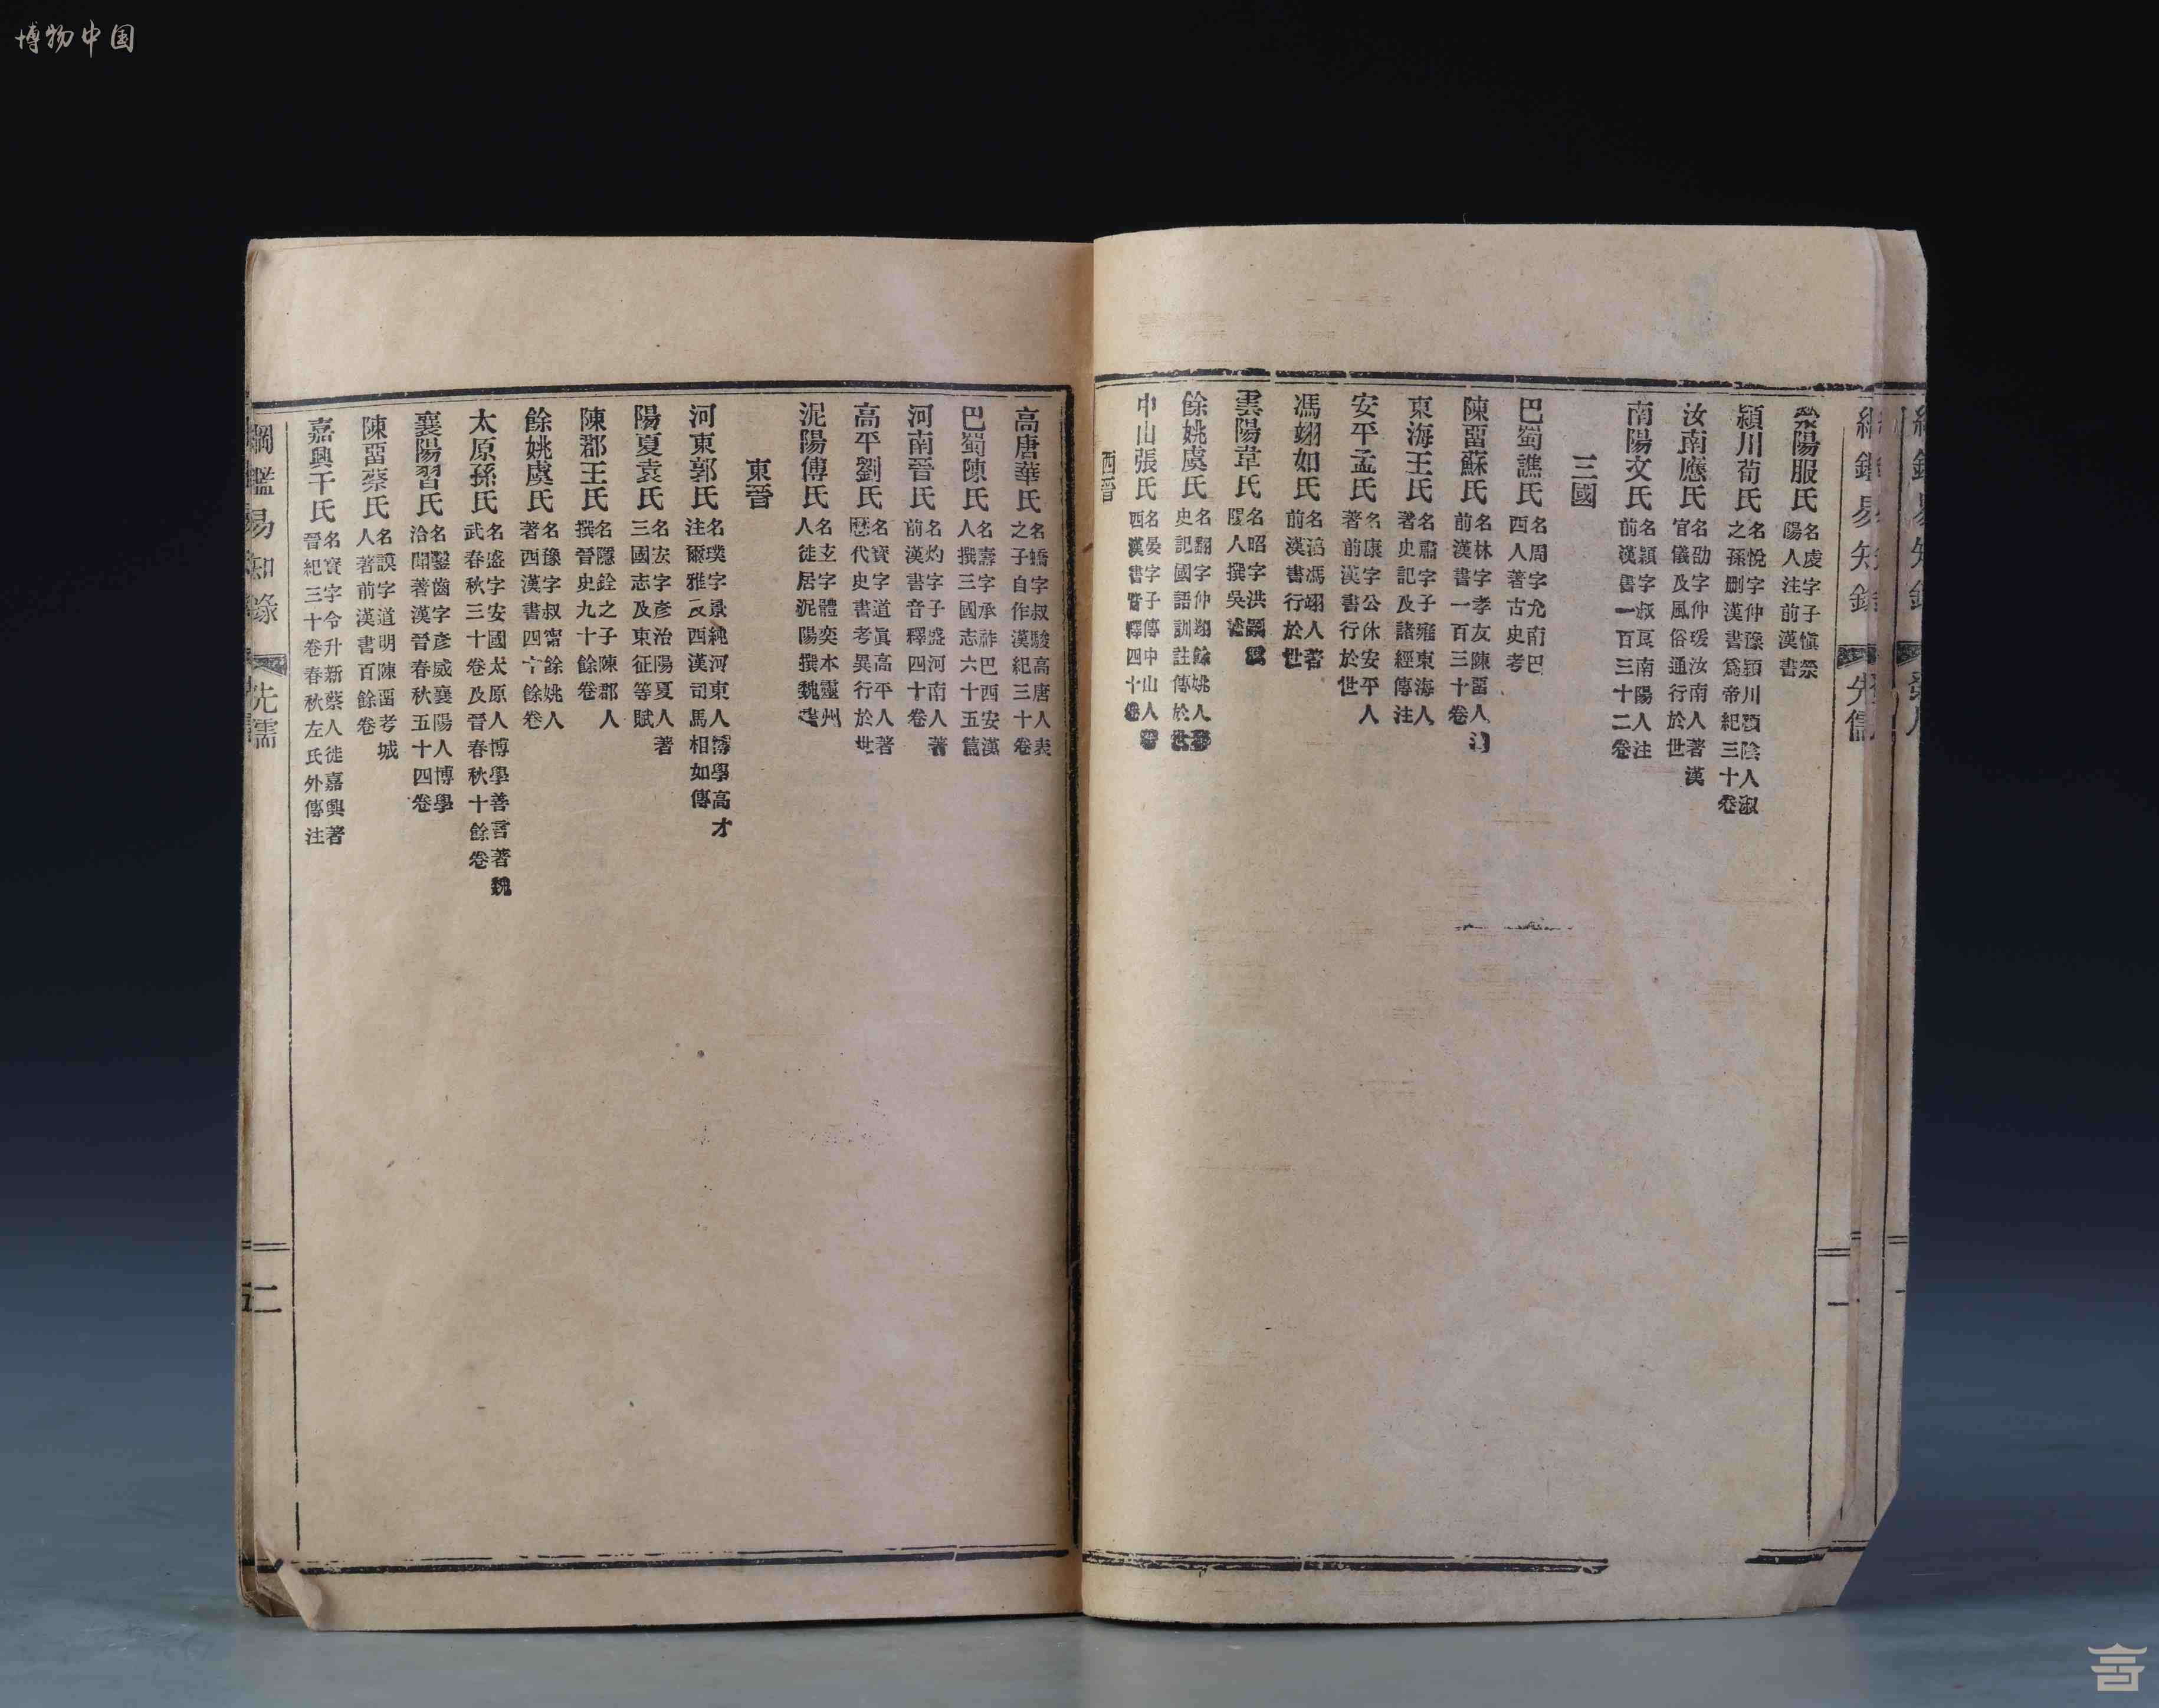 博物中国
綱鑑易知錄 先儒 一
滎陽服氏 名虔字子愼滎陽人注前漢書
潁川荀氏 名悅字仲豫潁川潁陰人淑之孫刪漢書爲帝紀三十卷
汝南應氏 名劭字仲瑗汝南人著漢官儀及風俗通行於世
南陽文氏 名穎字叔良南陽人注前漢書一百三十二卷
三國
巴蜀譙氏 名周字允南巴西人著古史考
陳畱蘇氏 名林字孝友陳畱人前漢書一百三十卷
東海王氏 名肅字子雍東海人著史記及諸經傳注
安平孟氏 名康字公休安平人著前漢書行於世
馮翊如氏 名淳馮翊人著前漢書行於世
雲陽韋氏 名昭字洪嗣雲陽人撰吳書
餘姚虞氏 名翻字仲翔餘姚人史記國語訓註傳於世
中山張氏 名晏字子傳中山人西漢書音釋四十卷
西晉
高唐華氏 名嶠字叔駿高唐人表之子自作漢紀三十卷
巴蜀陳氏 名壽字承祚巴西安漢人撰三國志六十五篇
河南晉氏 名灼字子盛河南人著前漢書音釋四十卷
高平劉氏 名寶字道眞高平人著歷代史書考異行於世
泥陽傅氏 名玄字體奕本靈州人徙居泥陽撰魏書
東晉
河東郭氏 名璞字景純河東人博學高才注爾雅及西漢司馬相如傳
陽夏袁氏 名宏字彥治陽夏人著三國志及東征等賦
陳郡王氏 名隱銓之子陳郡人撰晉史九十餘卷
餘姚虞氏 名豫字叔甯餘姚人著西漢書四十餘卷
太原孫氏 名盛字安國太原人博學善言著魏武春秋三十卷及晉春秋十餘卷
襄陽習氏 名鑿齒字彥威襄陽人博學洽聞著漢晉春秋五十四卷
陳畱蔡氏 名謨字道明陳畱考城人著前漢書百餘卷
嘉興干氏 名寶字令升新蔡人徙嘉興著晉紀三十卷春秋左氏外傳注
綱鑑易知錄 先儒 二